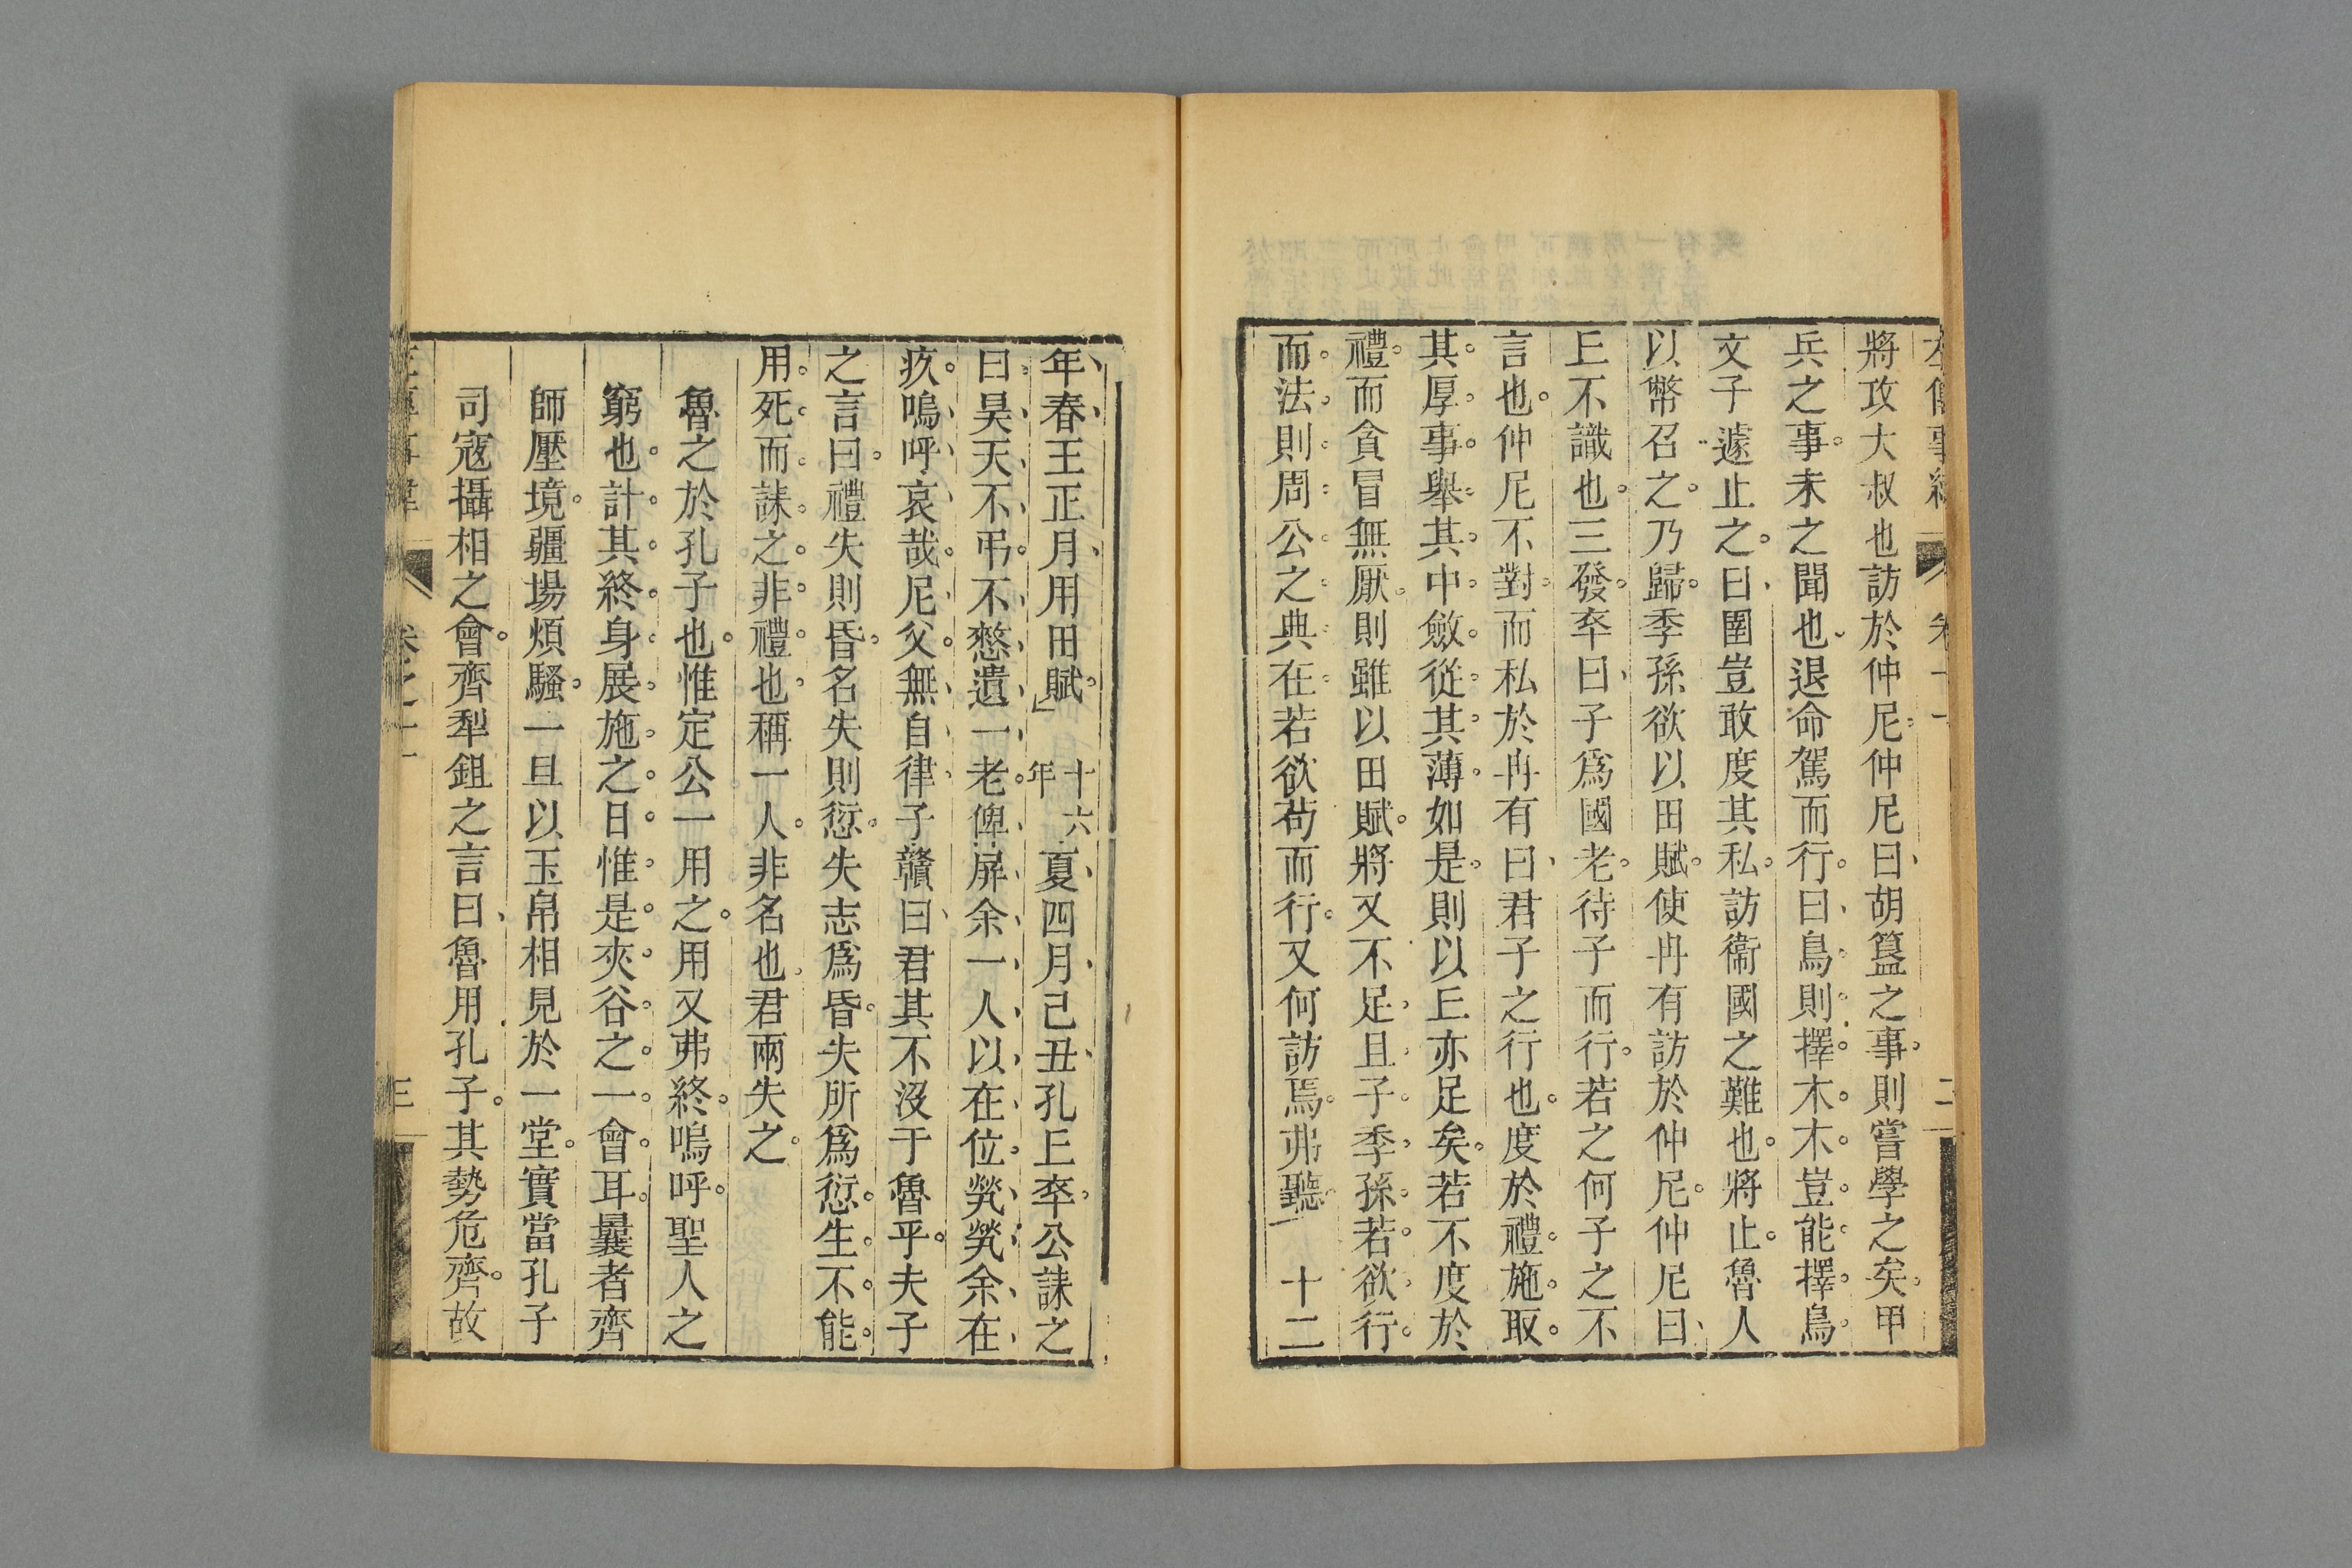 將攻大叔也訪於仲尼仲尼曰胡簋之事則嘗學之矣甲
兵之事未之聞也退命駕而行曰鳥則擇木木豈能擇鳥
文子遽止之曰圉豈敢度其私訪衞國之難也將止魯人
以幣召之乃歸季孫欲以田賦使冉有訪於仲尼仲尼曰
丘不識也三發卒曰子爲國老待子而行若之何子之不
言也仲尼不對而私於冉有曰君子之行也度於禮施取
其厚事舉其中斂從其薄如是則以丘亦足矣若不度於
禮而貪冒無厭則雖以田賦將又不足且子季孫若欲行
而法則周公之典在若欲苟而行又何訪焉弗聽 十二
年春王正月用田賦」十六年夏四月己丑孔丘卒公誄之
曰昊天不弔不憖遺一老俾屏余一人以在位煢煢余在
疚嗚呼哀哉尼父無自律子贛曰君其不沒于魯乎夫子
之言曰禮失則昏名失則愆失志爲昏失所爲愆生不能
用死而誄之非禮也稱一人非名也君兩失之
魯之於孔子也惟定公一用之用又弗終嗚呼聖人之
窮也計其終身展施之日惟是夾谷之一會耳曩者齊
師壓境疆場煩騷一旦以玉帛相見於一堂實當孔子
司寇攝相之會齊犁鉏之言曰魯用孔子其勢危齊故